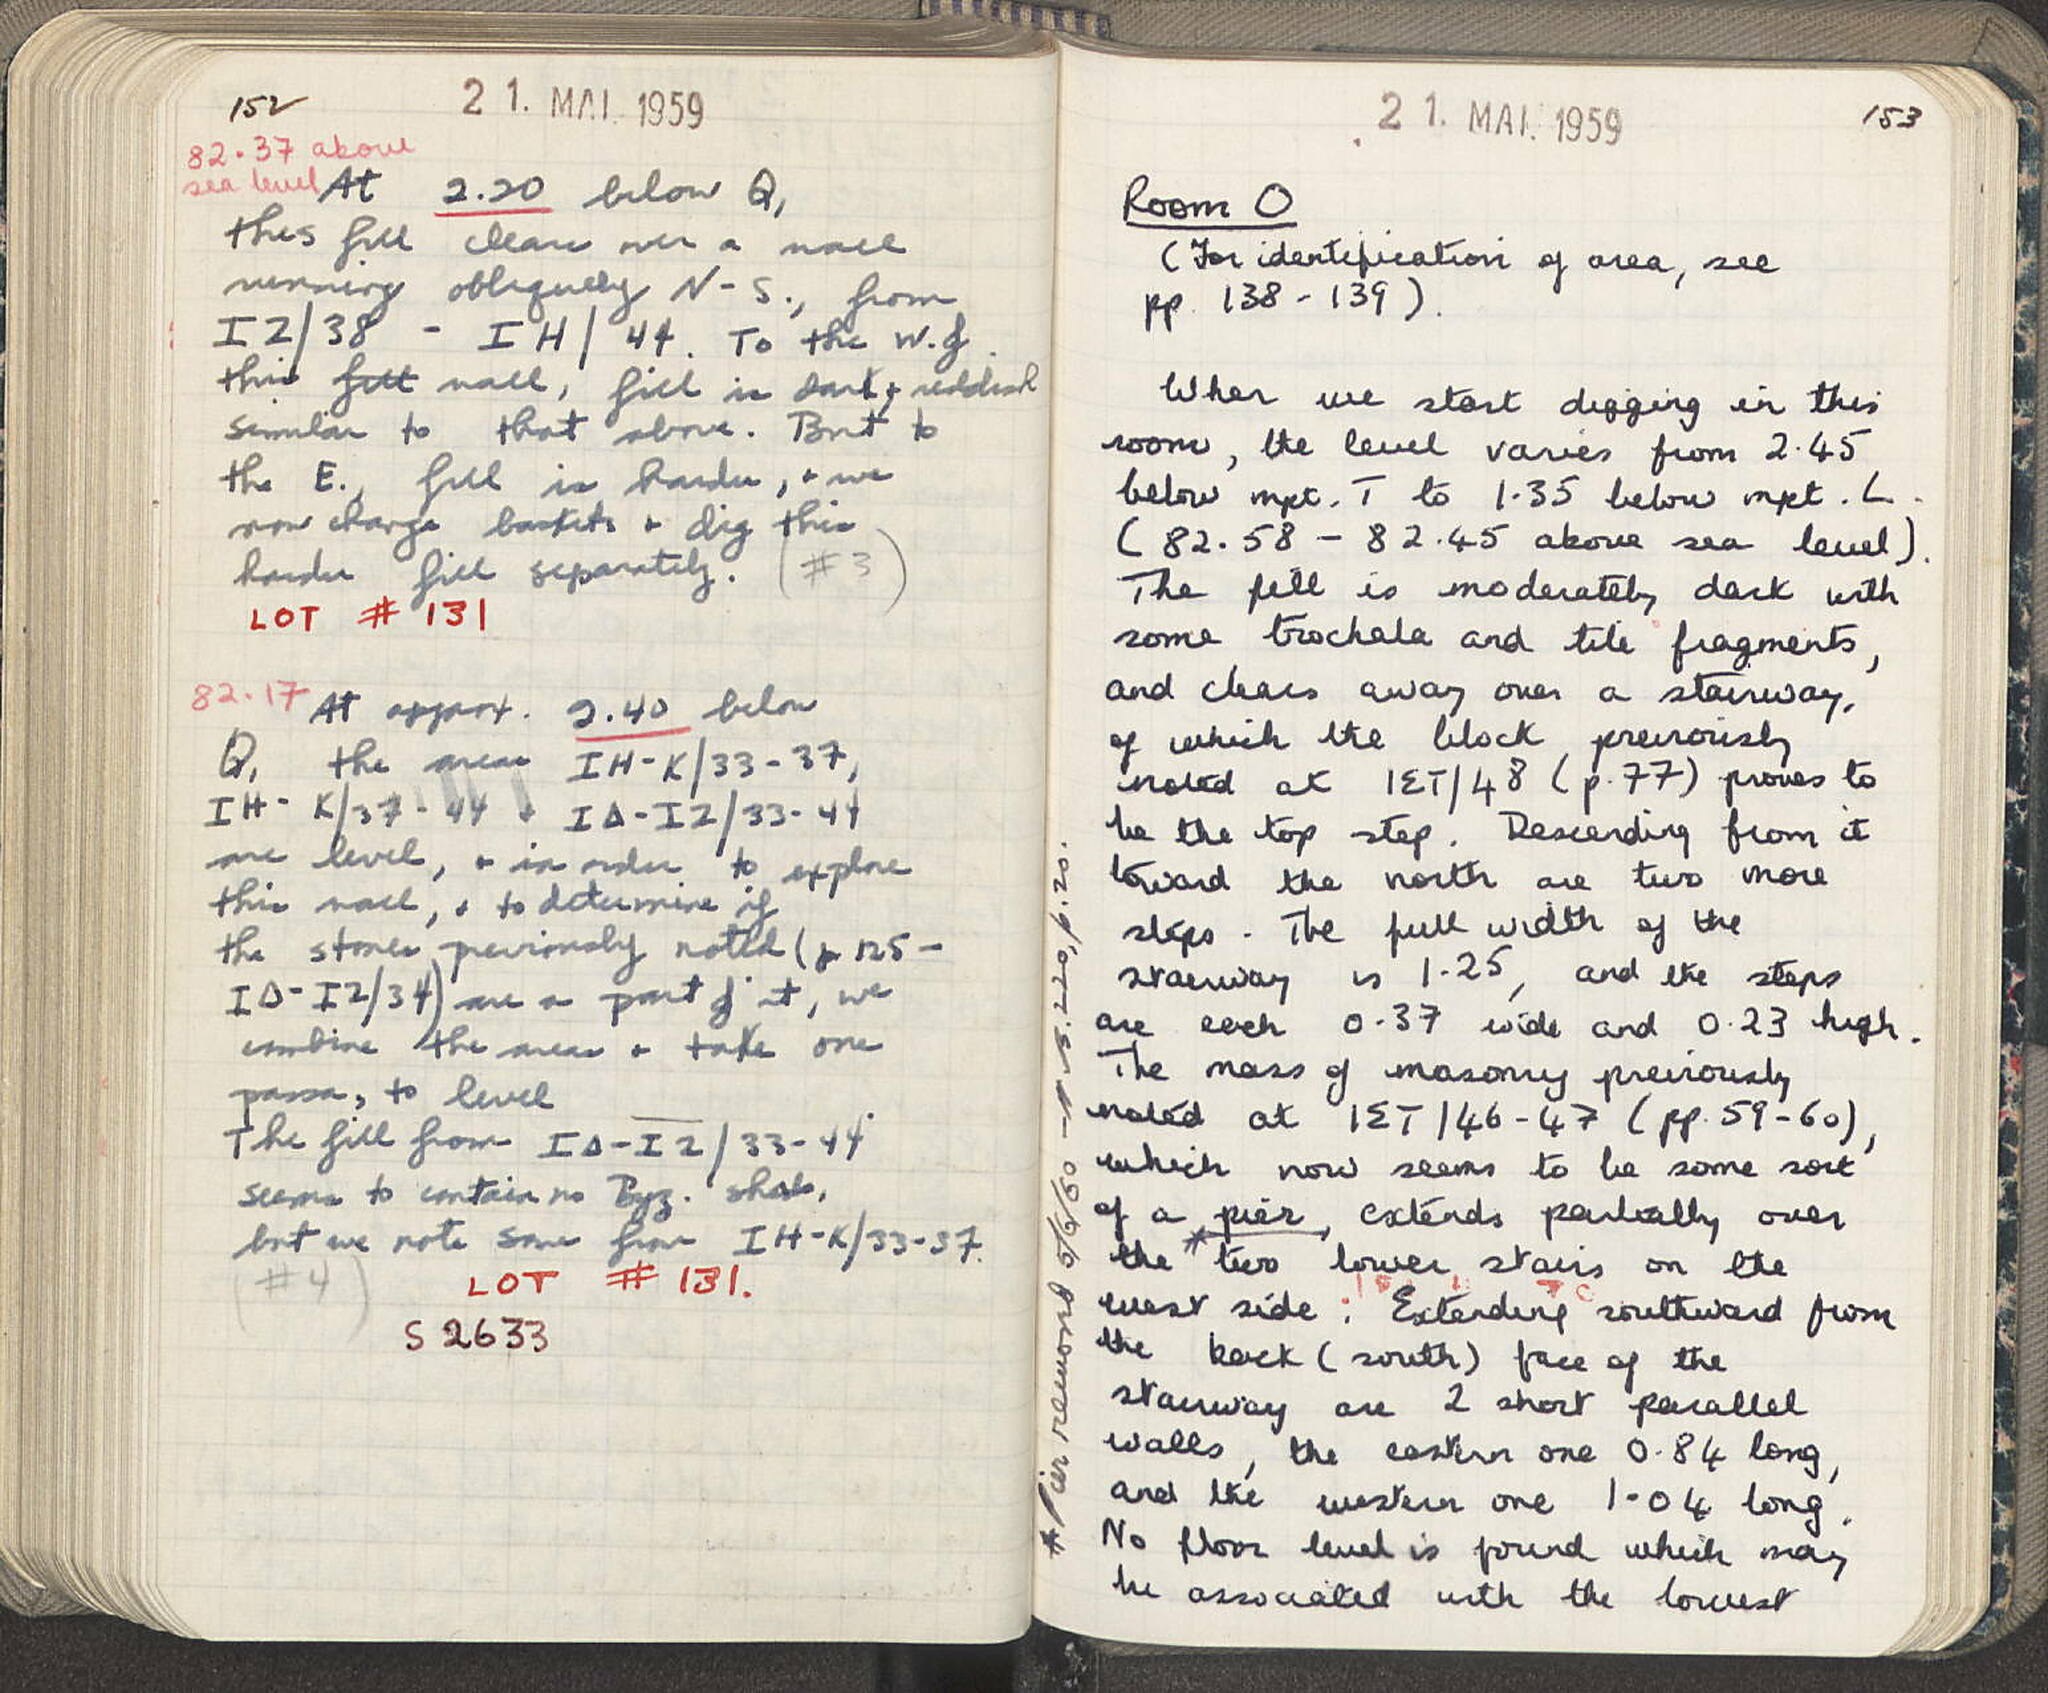 152
21. MAI. 1959
82.37 above
sea level
At 2.20 below Q,
this fill clears over a wall
running obliquely N-S., from
IZ/38 - IH/44. To the W. of
this fill wall, fill is dark, + reddish
similar to that above. But to
the E., fill is harder, + we
now change baskets + dig this
harder fill separately. (#3)
LOT #131
82.17
At approx. 2.40 below
Q, the areas IH-K/33-37,
IH-K/37-44 + IΔ-IZ/33-44
are level, + in order to explore
this wall, + to determine if
the stones previously noted (p 125-
IΔ-IZ/34) are a part of it, we
combine the areas + take one
passa, to level
The fill from IΔ-IZ/33-44
seems to contain no Byz. sherds,
but we note some from IH-K/33-37.
(#4)
LOT #131.
S 2633
21. MAI. 1959
153
Room O
(For identification of area, see
pp. 138-139).
When we start digging in this
room, the level varies from 2.45
below mpt. T to 1.35 below mpt. L.
(82.58 - 82.45 above sea level).
The fill is moderately dark with
some trochala and tile fragments,
and clears away over a stairway,
of which the block previously
noted at IΣT/48 (p.77) proves to
be the top step. Descending from it
toward the north are two more
steps. The full width of the
stairway is 1.25, and the steps
are each 0.37 wide and 0.23 high.
The mass of masonry previously
noted at IΣT/46-47 (pp. 59-60),
which now seems to be some sort
of a pier*, extends partially over
the two lower stairs on the
west side. Extending southward from
the back (south) face of the
stairway are 2 short parallel
walls, the eastern one 0.84 long,
and the western one 1.04 long.
No floor level is found which may
be associated with the lowest
*Pier removed 6/6/60 - p. 20.